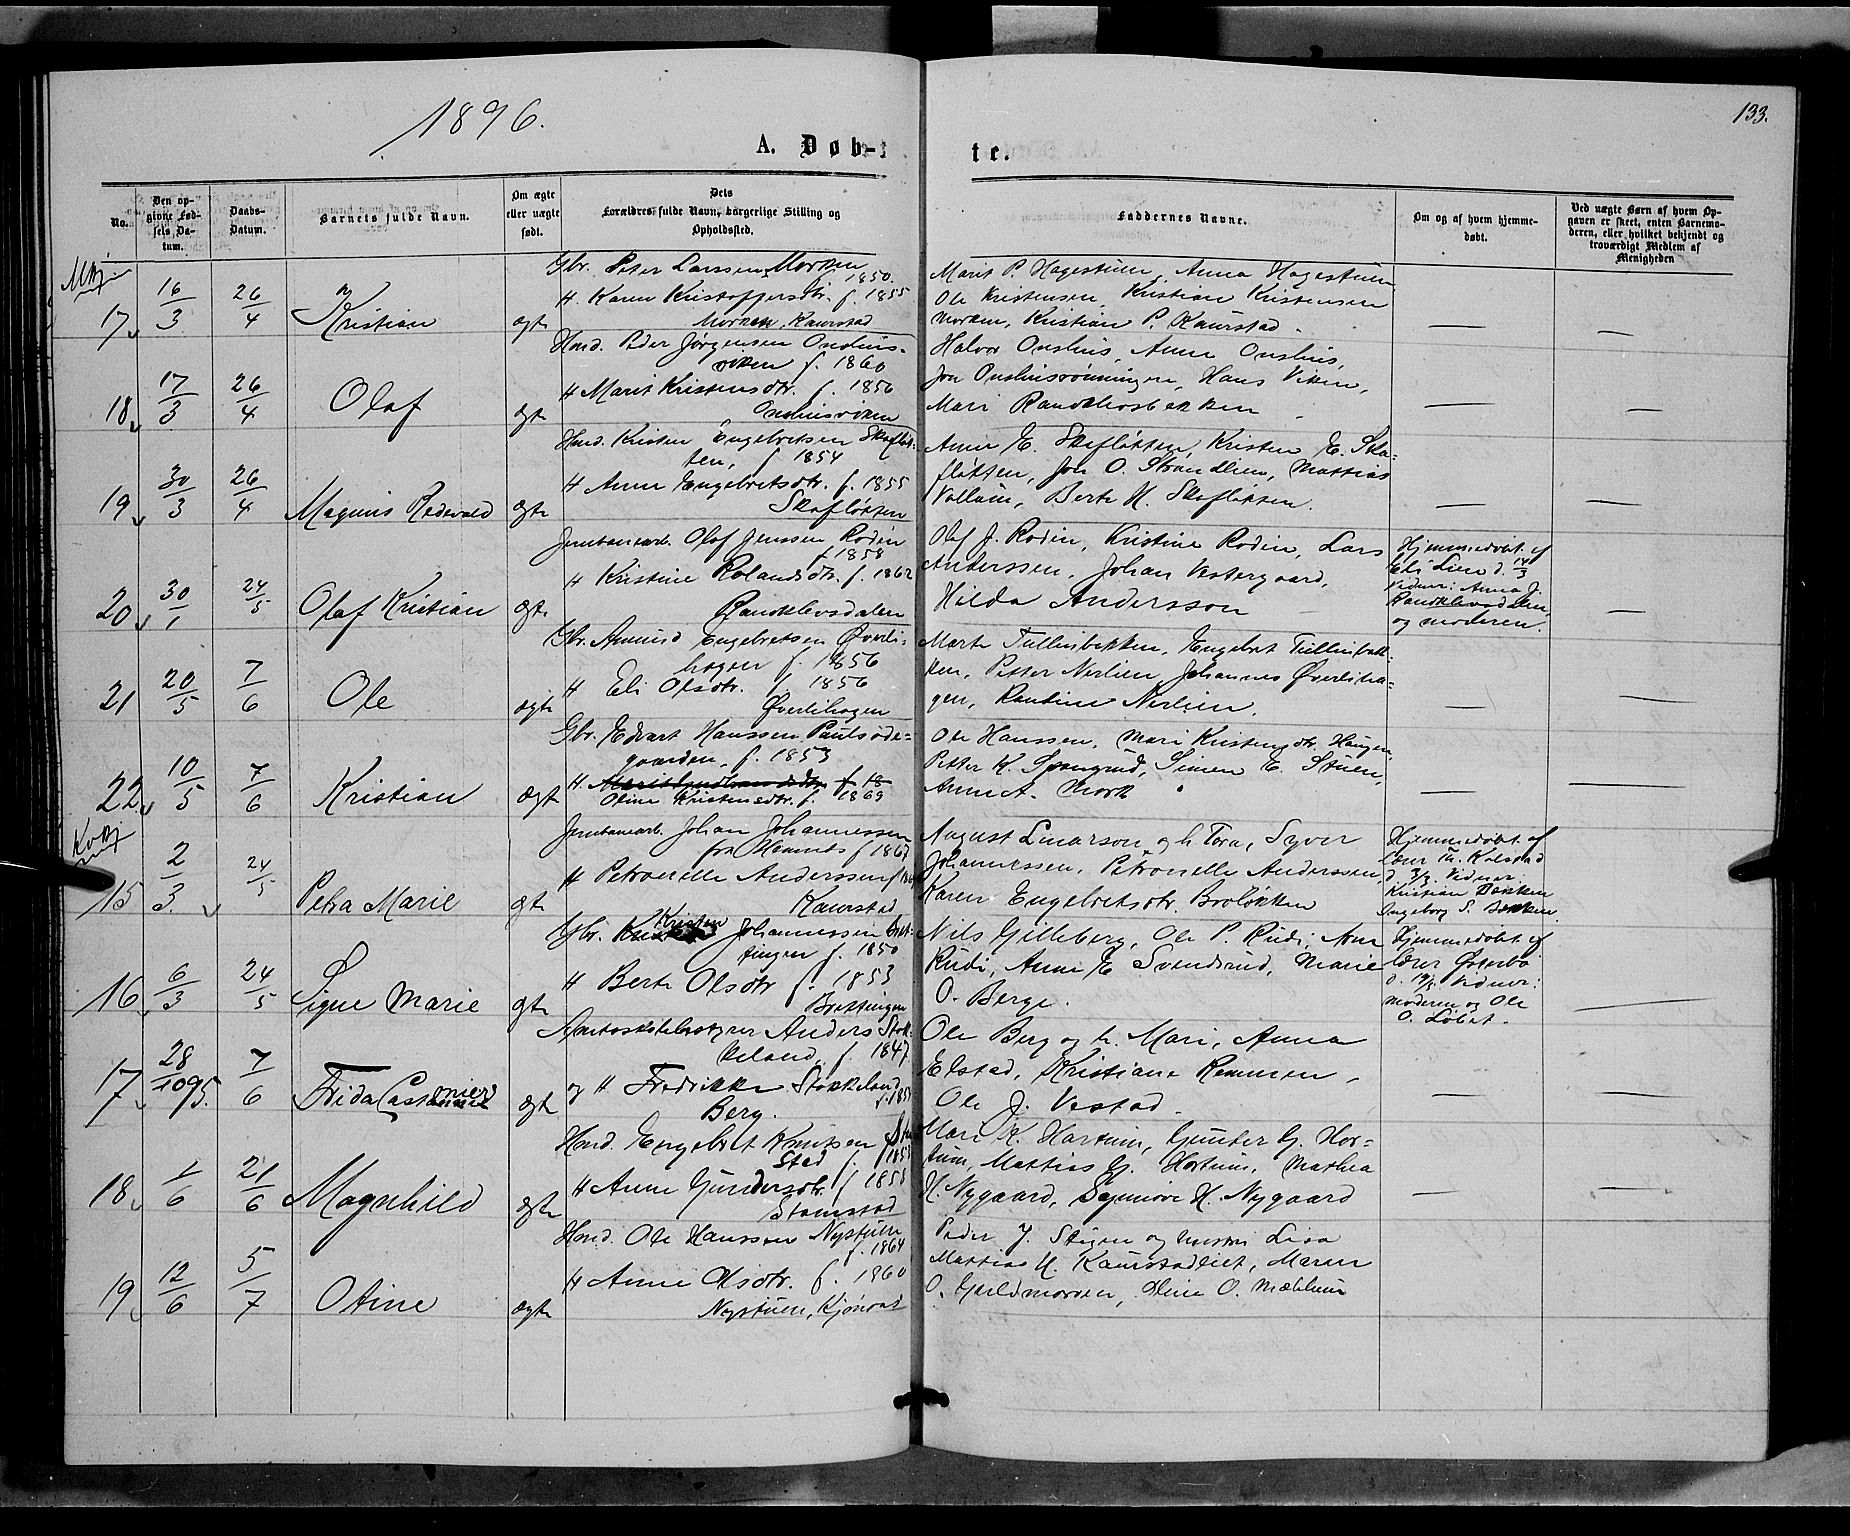 1896.
133.
A. Døb-
te.
No.
Den opgivne Fødsels Datum.
Daabs-Datum.
Barnets fulde Navn.
Om ægte eller uægte født.
Dets Forældres fulde Navn, borgerlige Stilling og Opholdssted.
Faddernes Navne.
Om og af hvem hjemmedøbt.
Ved uægte Børn af hvem Opgaven er skeet, enten Barnemoderen, eller hvilket bekjendt og troværdigt Medlem af Menigheden
17
16/3
26/4
Kristian
ægte
Gbr. Peter Larssen Morken
f. 1850.
H. Karen Kristoffersdtr. f. 1855
Morken, Kaurstad
Marit P. Hagestuen, Anna Hagestuen
Ole Kristensen, Kristian Kristensen
Morken, Kristian P. Kaurstad.
—
—
18
17/3
26/4
Olaf
ægte
Hmd. Peder Jørgensen Onshus-
viken f. 1860
H Marit Kristensdtr. f. 1856
Onshusviken
Halvor Onshus, Anne Onshus,
Jon Onshusrønningen, Hans Viken,
Mari Randklevsbakken
—
—
19
30/3
26/4
Magnus Redevald
ægte
Hmd. Kristen Engebretsen Skafløt-
ten, f. 1854
H Anne Engebretsdtr. f. 1855
Skafløtten
Anne E. Skafløtten, Kristen E. Ska-
fløtten, Jon O. Strandlien, Mattias
Volleim, Berte H. Skafløtten.
—
—
20
30/1
24/5
Olaf Kristian
ægte
Jernbanearb. Olaf Jenssen Rodin
f 1858
H Kristine Rolandsdtr. f. 1862
Randklevsdalen
Olaf J. Rodin, Kristine Rodin, Lars
Anderssen, Johan Vestergaard,
Hilda Andersson
Hjemmedøbt af
Eli Lien d. 14/3
Vidner: Anna J.
Randklevsdalen
og moderen.
—
21
20/5
7/6
Ole
ægte
Gbr. Amund Engebretsen Øverli-
hagen f. 1856
H Eli Olsdtr. f 1856
Øverlihagen
Marte Tullinbekken, Engebret Tullinbek-
ken, Petter Nerlien, Johannes Øverliha-
gen, Randine Nerlien.
—
—
22
10/5
7/6
Kristian
ægte
Gbr. Edvart Hanssen Paulsøde-
gaarden, f. 1853
H. Otine Kristensdtr. f. 1869
Ole Hanssen, Mari Kristensdtr. Haugen,
Petter K. Spangrud, Simen E. Stuen,
Anne A. Mork
—
—
15
2/3.
24/5
Petra Marie
ægte
Jernbanearb. Johan Johannessen
f 1867
H Petronelle Anderssen
Kaurstad
August Enarson og h. Tora, Syver
Johannessen, Petronelle Anderssen,
Karen Engebretsdtr. Broløkken
Hjemmedøbt af
Vidner:
Kristian Bakken
Ingeborg S. Bakken.
16
6/3
24/5
Signe Marie
ægte
Gbr. Kristen Johannessen Bret-
tingen f. 1850
H Berte Olsdtr f. 1853
Brettingen
Nils Gilleberg, Ole P. Rudi, Arne
Rudi, Anne E Svendsrud, Marie
O. Berge.
Hjemmedøbt af
lærer Østerbø
Vidner:
moderen og Ole
O. Løbet.
—
17
28/1095.
7/6
Frida Castanier
ægte
Amtsskolebestyrer Anders Stok-
keland, f. 1847
og H Fredrikke Stokkeland
Berg.
Ole Berg og h. Mari, Anna
Elstad, Kristiane Remmen,
Ole J. Vestad.
—
—
18
1/6
21/6
Magnhild
ægte
Hmd. Engebret Knutsen Stam-
stad f. 1853
H Anne Gundersdtr. f 1858
Stamstad
Mari K. Hartum, Gunder G. Hor-
tum, Mattias G. Hortum, Mathea
H. Nygaard, Synnøve H. Nygaard
—
—
19
12/6
5/7
Otine
ægte
Hmd. Ole Hanssen Nystuen
f. 1864
H Anne Olsdtr. f. 1860
Nystuen, Kjønaas
Peder J. Stigen og hustru Lisa
Mattias H. Kaurstadlier, Maren
O. Gjeldmorken, Oline O. Mæhlum